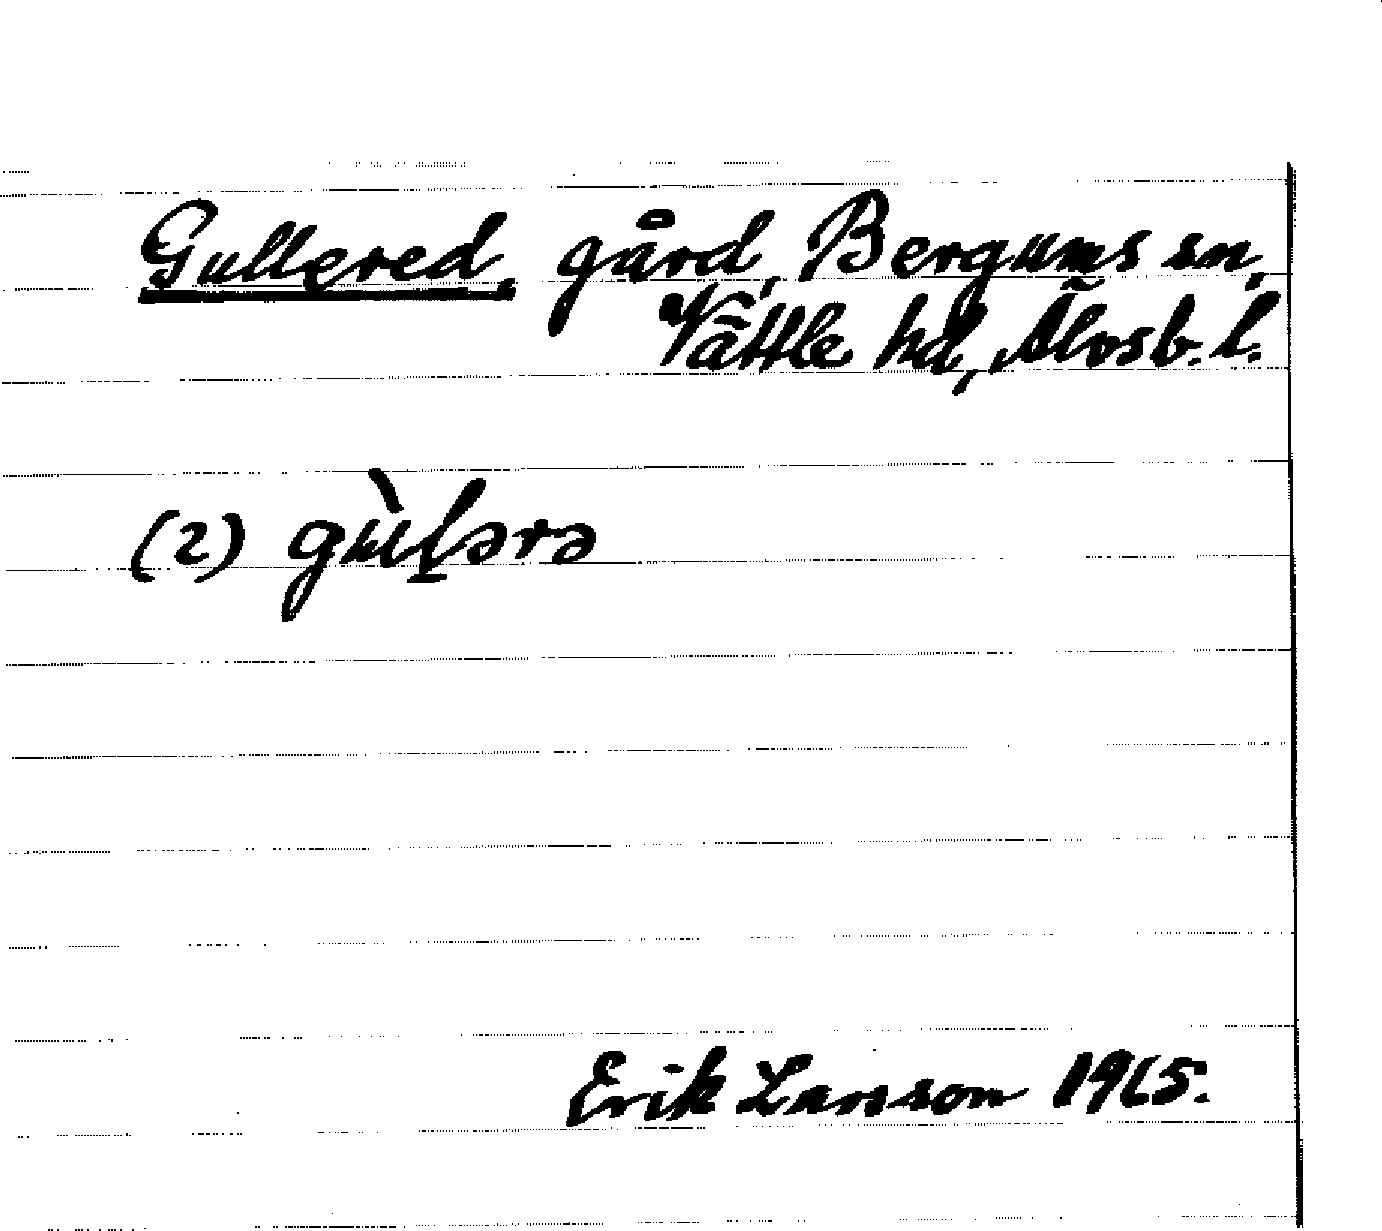 Gullered, gård, Bergums sn,
Vättle hd, Älvsb. l.
(2) gùl̲ərə
Erik Larsson 1965.